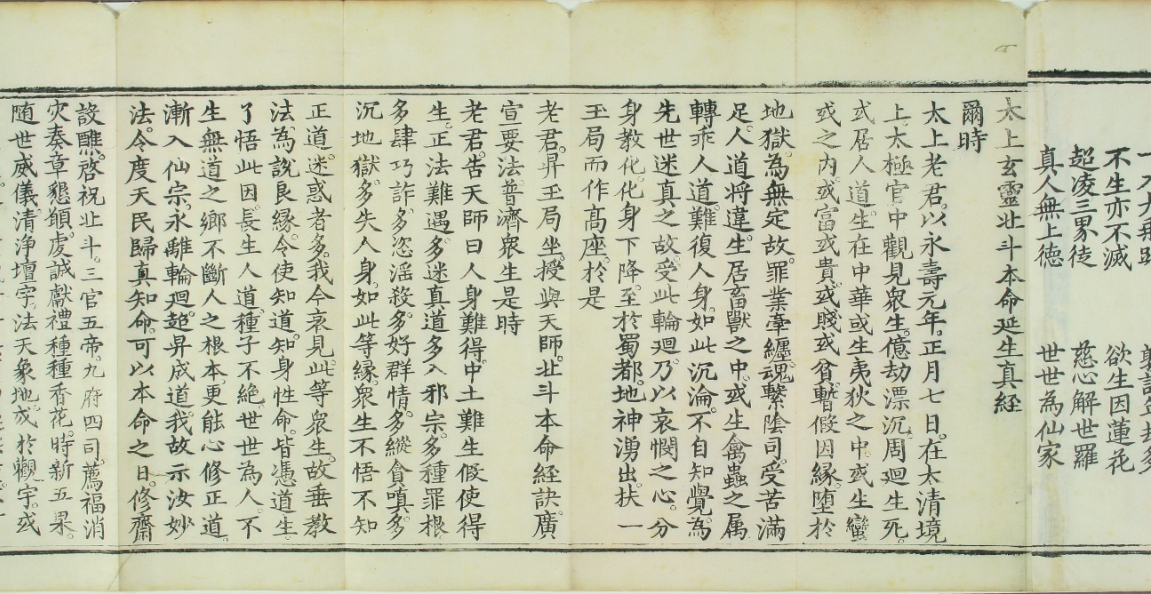 不生亦不滅 欲生因蓮花
超凌三界徒 慈心解世羅
真人無上徳 世世為仙家
太上玄靈北斗本命延生真経
爾時
太上老君。以永壽元年。正月七日。在太清境
上。太極宮中觀見衆生。億劫漂沉。周廻生死。
或居人道。生在中華或生夷狄之中。或生蠻
戎之内或富或貴。或賤或貧。暫假因縁。堕於
地獄。為無定故。罪業牽纒。魂繫陰司。受苦滿
足。人道将違。生居畜獸之中。或生禽蟲之属
轉乖人道。難復人身。如此沉淪。不自知覺。為
先世迷真之故。受此輪廻。乃以哀憫之心。分
身教化。化身下降。至於蜀都。地神湧出。扶一
玉局而作髙座。於是
老君。昇玉局坐。授與天師。北斗本命経訣。廣
宣要法。普濟衆生是時
老君。告天師曰人身難得。中土難生假使得
生。正法難遇。多迷真道。多入邪宗。多種罪根
多肆巧詐。多恣淫殺。多好群情。多縱貪嗔。多
沉地獄。多失人身。如此等縁。衆生不悟不知
正道。迷惑者多。我今哀見此等衆生。故垂教
法為説良縁。令使知道。知身性命。皆憑道生。
了悟此因。長生人道。種子不絶。世世為人。不
生無道之郷不斷人之根本。更能心修正道。
漸入仙宗。永離輪廻。超昇成道。我故示汝妙
法。令度天民歸真知命。可以本命之日。修齋
設醮。啓祝北斗。三官五帝。九府四司。薦福消
灾奏章懇願。虔誠獻禮。種種香花。時新五果。
随世威儀清浄壇宇。法天象地。或於觀宇。或